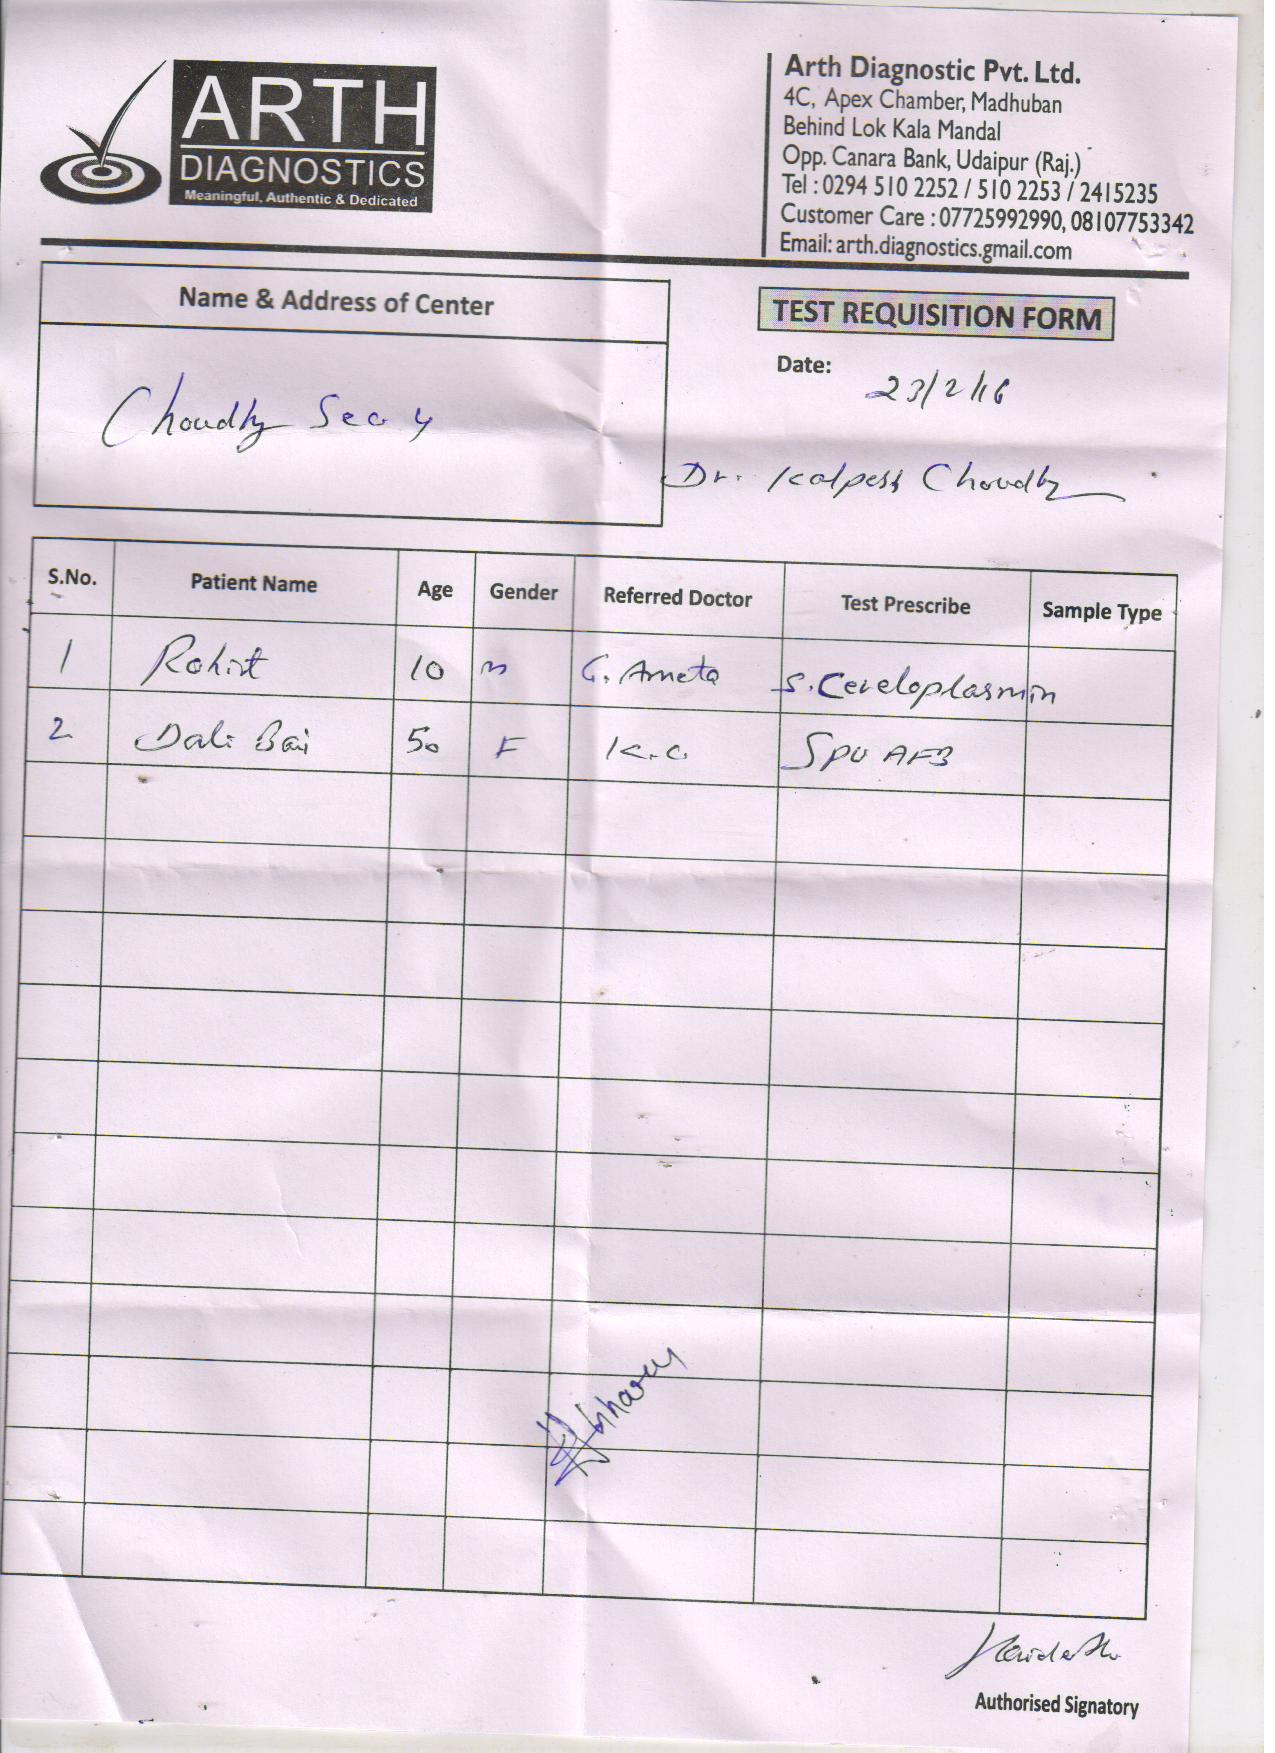 ARTH
DIAGNOSTICS
Meaningful, Authentic & Dedicated
Arth Diagnostic Pvt. Ltd.
4C, Apex Chamber, Madhuban
Behind Lok Kala Mandal
Opp. Canara Bank, Udaipur (Raj.)
Tel : 0294 510 2252 / 510 2253 / 2415235
Customer Care : 07725992990, 08107753342
Email: arth.diagnostics.gmail.com
Name & Address of Center
TEST REQUISITION FORM
Date: 23/2/16
Choudhy Sec 4
Dr. Kalpesh Choudhy
S.No. Patient Name Age Gender Referred Doctor Test Prescribe Sample Type
1 Rohit 10 M G. Ameta S. Cereloplasmin
2 Dali Bai 50 F K.C. SPU AFB
Authorised Signatory